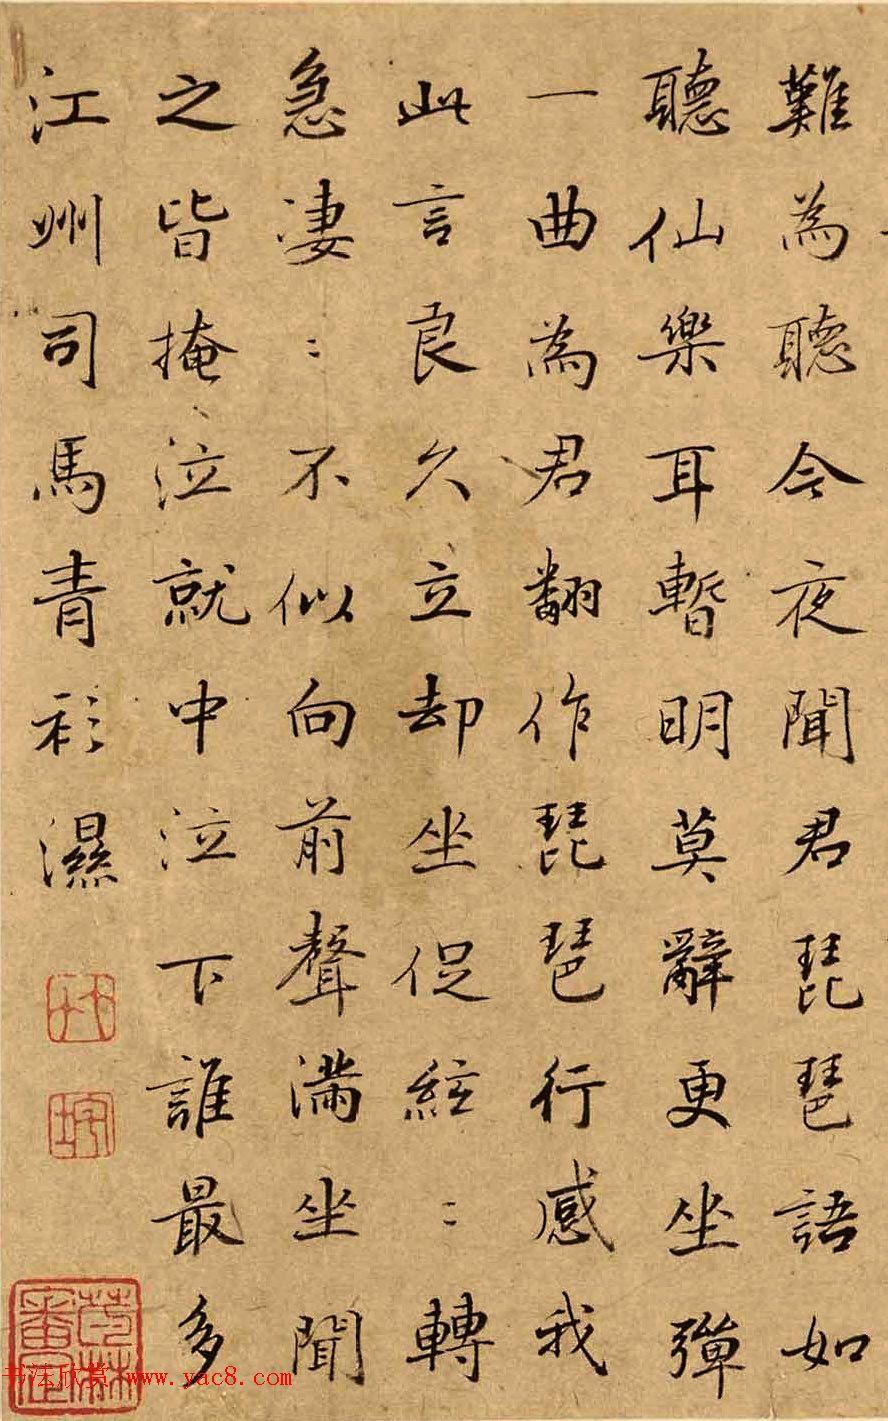 難為聽今夜聞君琵琶語如
聽仙樂耳暫明莫辭更坐彈
一曲為君翻作琵琶行感我
此言良久立却坐促絃〻轉
急凄〻不似向前聲滿坐聞
之皆掩泣就中泣下誰最多
江州司馬青衫濕
茝林審定
书法欣赏 www.yac8.com